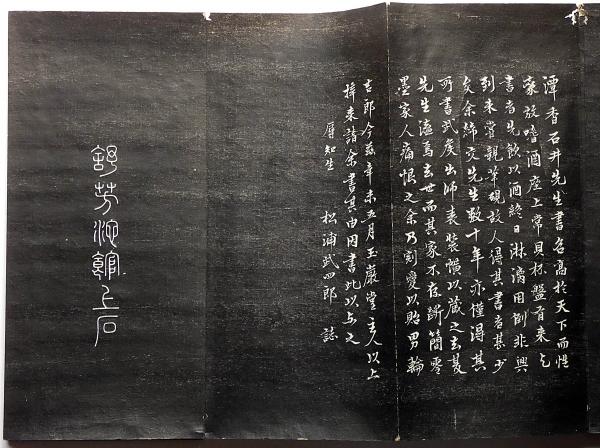 潭香石井先生書名高於天下而性
豪放嗜酒座上常具杯盤有來乞
書者先飲以酒終日淋漓困倒非興
到未嘗親筆硯故人得其書者甚少
友余締交先生數十年亦僅得其
所書武侯出師表裝潢以藏之去夏
先生溘焉去世而其家不存斷簡零
墨家人痛恨之余乃割愛以貽男輪
吉郎今茲辛未五月玉巖堂主人以上
梓來請余書其由因書此以与之
辱知生 松浦武四郎 誌
舒芳池館上石